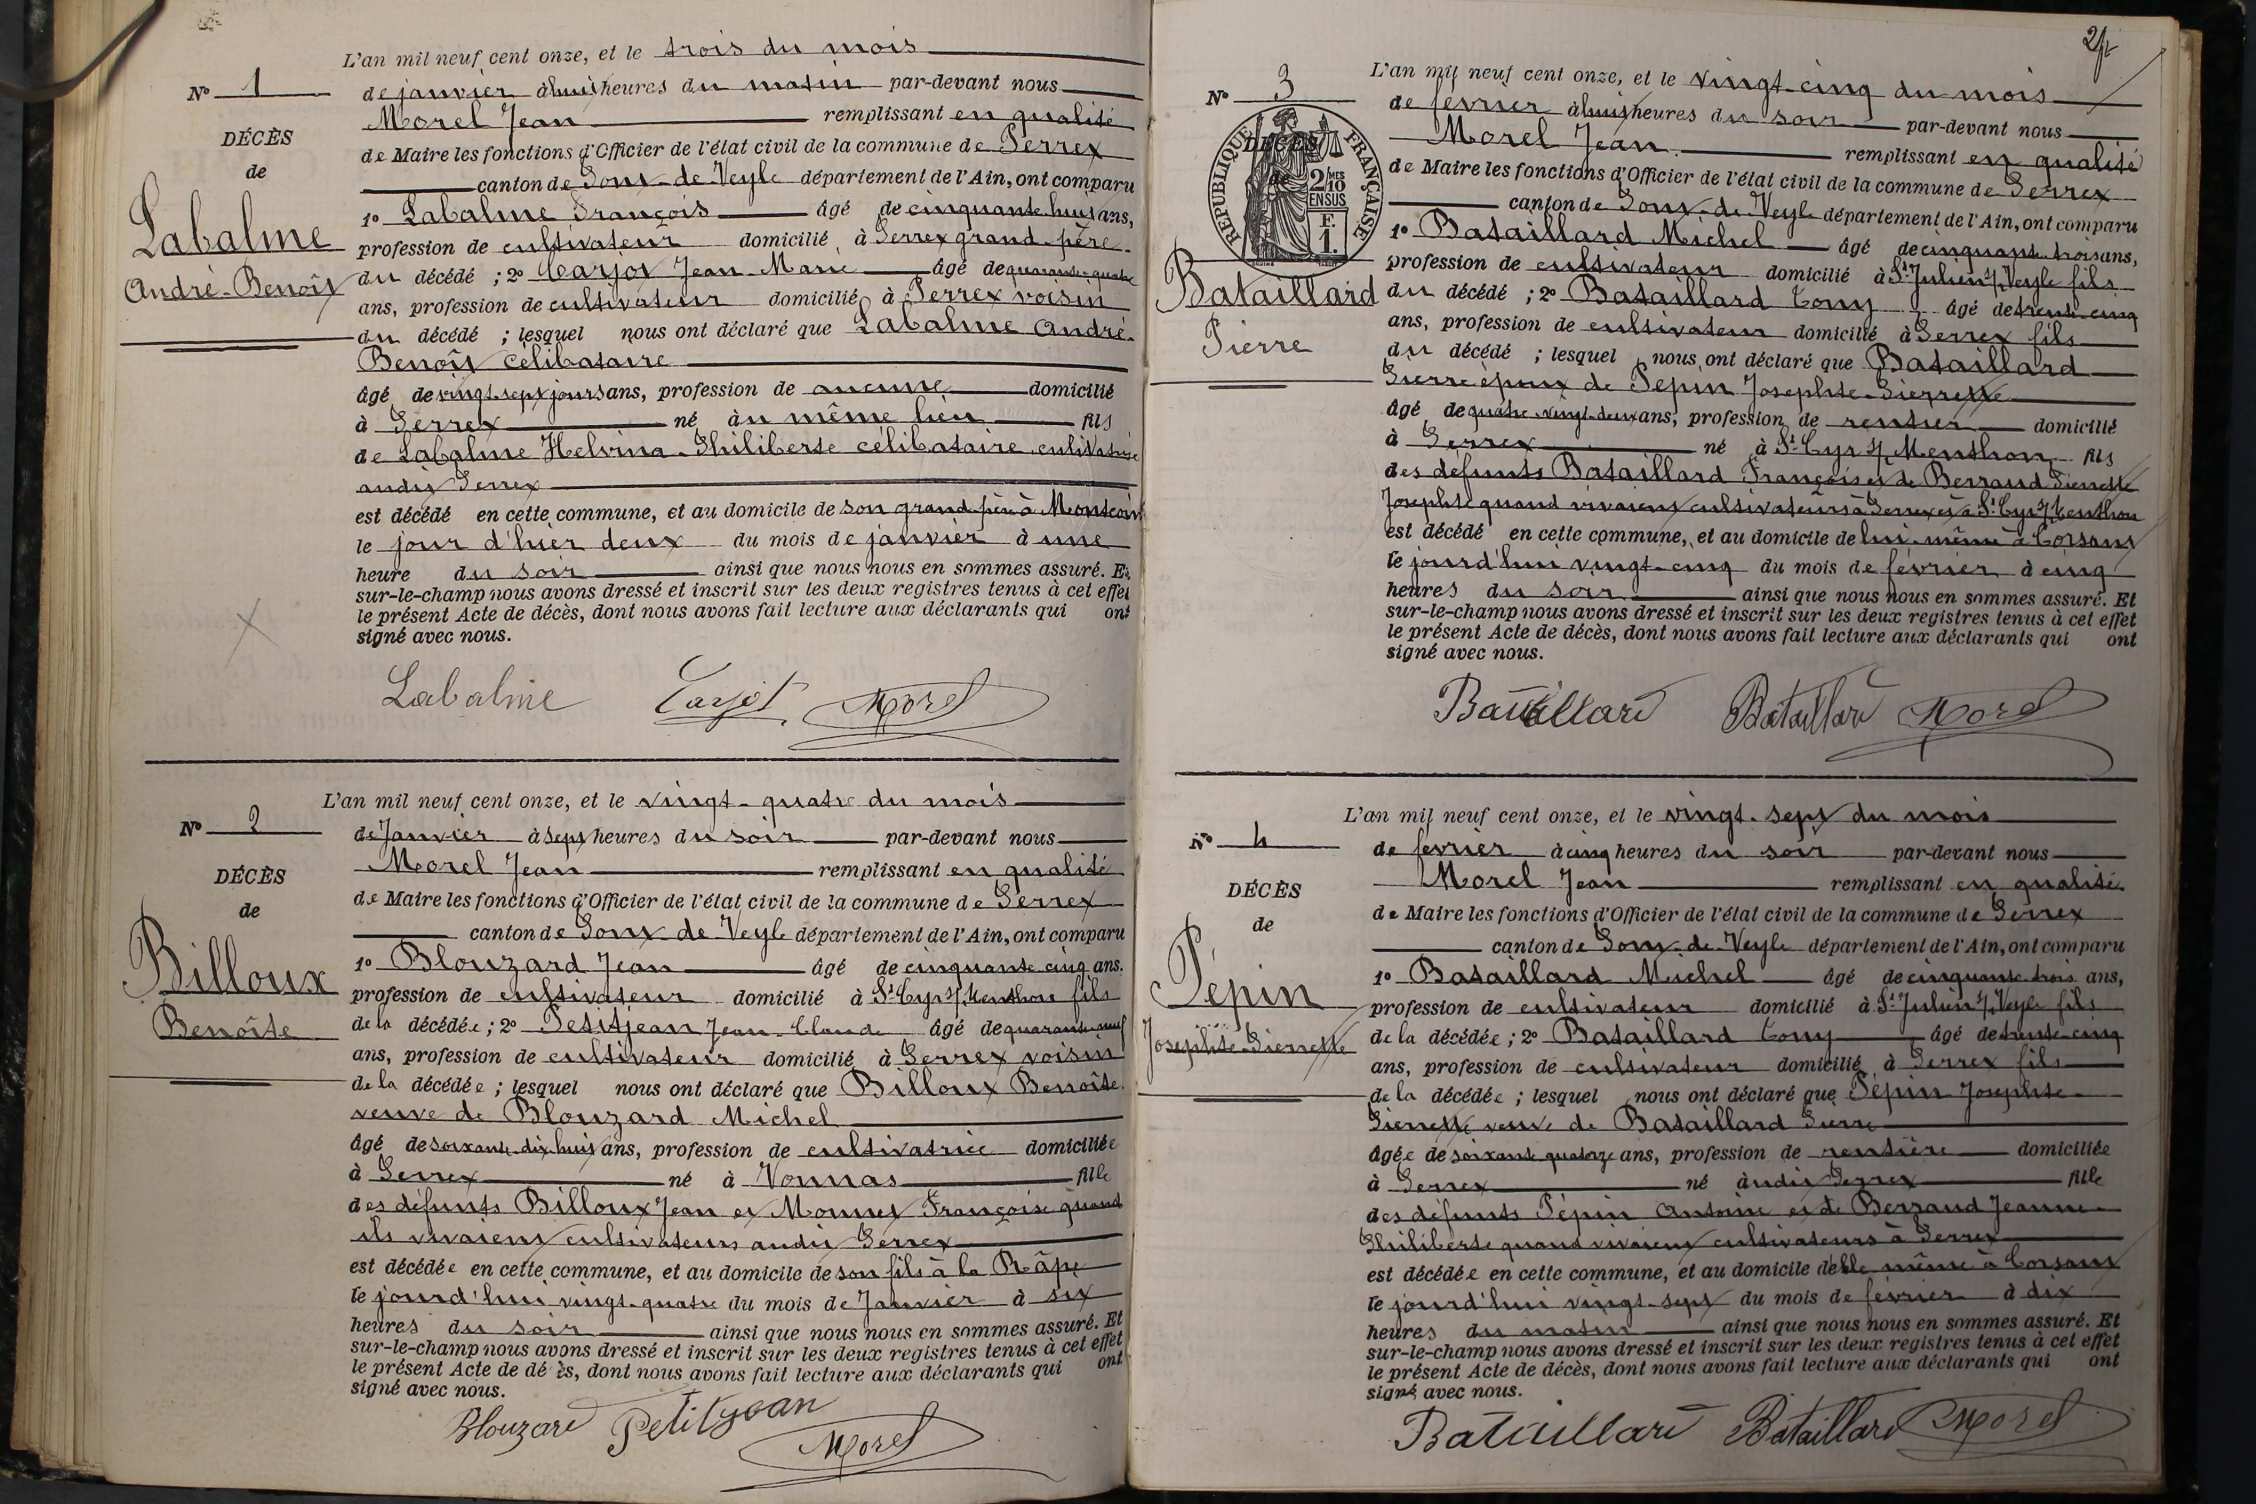 L'an mil neuf cent onze, et le trois du mois
N° 1
de janvier à huit heures du matin par-devant nous
Morel Jean remplissant en qualité
DÉCÈS
de Maire les fonctions d'Officier de l'état civil de la commune de Perrex
de
canton de Pont-de-Veyle département de l'Ain, ont comparu
Labalme
André-Benoît
1° Labalme François âgé de cinquante huit ans,
profession de cultivateur domicilié à Perrex grand-père
du décédé ; 2° Carjot Jean-Marie âgé de quarante-quatre
ans, profession de cultivateur domicilié à Perrex voisin
du décédé ; lesquel nous ont déclaré que Labalme André-
Benoît célibataire
âgé de vingt-sept jours ans, profession de aucune domicilié
à Perrex né au même lieu fils
de Labalme Helvina-Philiberte célibataire, cultivatrice
audit Perrex
est décédé en cette commune, et au domicile de son grand-père à
le jour d'hier deux du mois de janvier à une
heure du soir ainsi que nous nous en sommes assuré. Et
sur-le-champ nous avons dressé et inscrit sur les deux registres tenus à cet effet
le présent Acte de décès, dont nous avons fait lecture aux déclarants qui ont
signé avec nous.
Labalme Carjot Morel
L'an mil neuf cent onze, et le vingt-quatre du mois
N° 2
de Janvier à sept heures du soir par-devant nous
Morel Jean remplissant en qualité
DÉCÈS
de Maire les fonctions d'Officier de l'état civil de la commune de Perrex
de
canton de Pont-de-Veyle département de l'Ain, ont comparu
Billoux
Benoîte
1° Blouzard Jean âgé de cinquante cinq ans.
profession de cultivateur domicilié à St Cyr s/ Menthon fils
de la décédée ; 2° Petitjean Jean-Claude âgé de quarante-neuf
ans, profession de cultivateur domicilié à Perrex voisin
de la décédée ; lesquel nous ont déclaré que Billoux Benoîte
veuve de Blouzard Michel
âgé de soixante-dix huit ans, profession de cultivatrice domiciliée
à Perrex né à Vonnas fille
des défunts Billoux Jean et Monnet Françoise quand
ils vivaient cultivateurs audit Perrex
est décédée en cette commune, et au domicile de son fils à la Râpe
le jourd'hui vingt-quatre du mois de Janvier à six
heures du soir ainsi que nous nous en sommes assuré. Et
sur-le-champ nous avons dressé et inscrit sur les deux registres tenus à cet effet
le présent Acte de dé ès, dont nous avons fait lecture aux déclarants qui ont
signé avec nous.
Blouzard Petitjean
Morel
L'an mil neuf cent onze, et le vingt-cinq du mois
N° 3
de février à huit heures du soir par-devant nous
Morel Jean remplissant en qualité
DÉCÈS
de
RÉPUBLIQUE FRANÇAISE
2/10 MES
EN SUS
F.
1.
de Maire les fonctions d'Officier de l'état civil de la commune de Perrex
canton de Pont-de-Veyle département de l'Ain, ont comparu
Bataillard
Pierre
1° Bataillard Michel âgé de cinquante-trois ans,
profession de cultivateur domicilié à St Julien s/ Veyle fils
du décédé ; 2° Bataillard Tony âgé de trente-cinq
ans, profession de cultivateur domicilié à Perrex fils
du décédé ; lesquel nous ont déclaré que Bataillard
Pierre époux de Pépin Josephte-Pierrette
âgé de quatre-vingt-deux ans, profession de rentier domicilié
à Perrex né à St Cyr s/ Menthon fils
des défunts Bataillard François et de Berraud Pierrette
Josephte quand vivaient cultivateurs à Perrex et à St Cyr s/ Menthon
est décédé en cette commune, et au domicile de lui-même à Corsant
le jourd'hui vingt-cinq du mois de février à cinq
heures du soir ainsi que nous nous en sommes assuré. Et
sur-le-champ nous avons dressé et inscrit sur les deux registres tenus à cet effet
le présent Acte de décès, dont nous avons fait lecture aux déclarants qui ont
signé avec nous.
Bataillard Bataillard Morel
L'an mil neuf cent onze, et le vingt-sept du mois
N° 4
de fevrier à cinq heures du soir par-devant nous
Morel Jean remplissant en qualité
DÉCÈS
de Maire les fonctions d'Officier de l'état civil de la commune de Perrex
de
canton de Pont-de-Veyle département de l'Ain, ont comparu
Pépin
Josephte-Pierrette
1° Bataillard Michel âgé de cinquante-trois ans,
profession de cultivateur domicilié à St Julien s/ Veyle fils
de la décédée ; 2° Bataillard Tony âgé de trente-cinq
ans, profession de cultivateur domicilié à Perrex fils
de la décédée ; lesquel nous ont déclaré que Pépin Josephte-
Pierrette veuve de Bataillard Pierre
âgée de soixante quatorze ans, profession de rentière domiciliée
à Perrex né audit Perrex fille
des défunts Pépin Antoine et de Berraud Jeanne-
Philiberte quand vivaient cultivateurs à Perrex
est décédée en cette commune, et au domicile d'elle même à Corsant
le jourd'hui vingt-sept du mois de février à dix
heures du matin ainsi que nous nous en sommes assuré. Et
sur-le-champ nous avons dressé et inscrit sur les deux registres tenus à cet effet
le présent Acte de décès, dont nous avons fait lecture aux déclarants qui ont
signé avec nous.
Bataillard Bataillard Morel